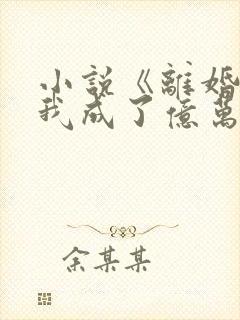 小說《離婚
我成了億萬
余某某